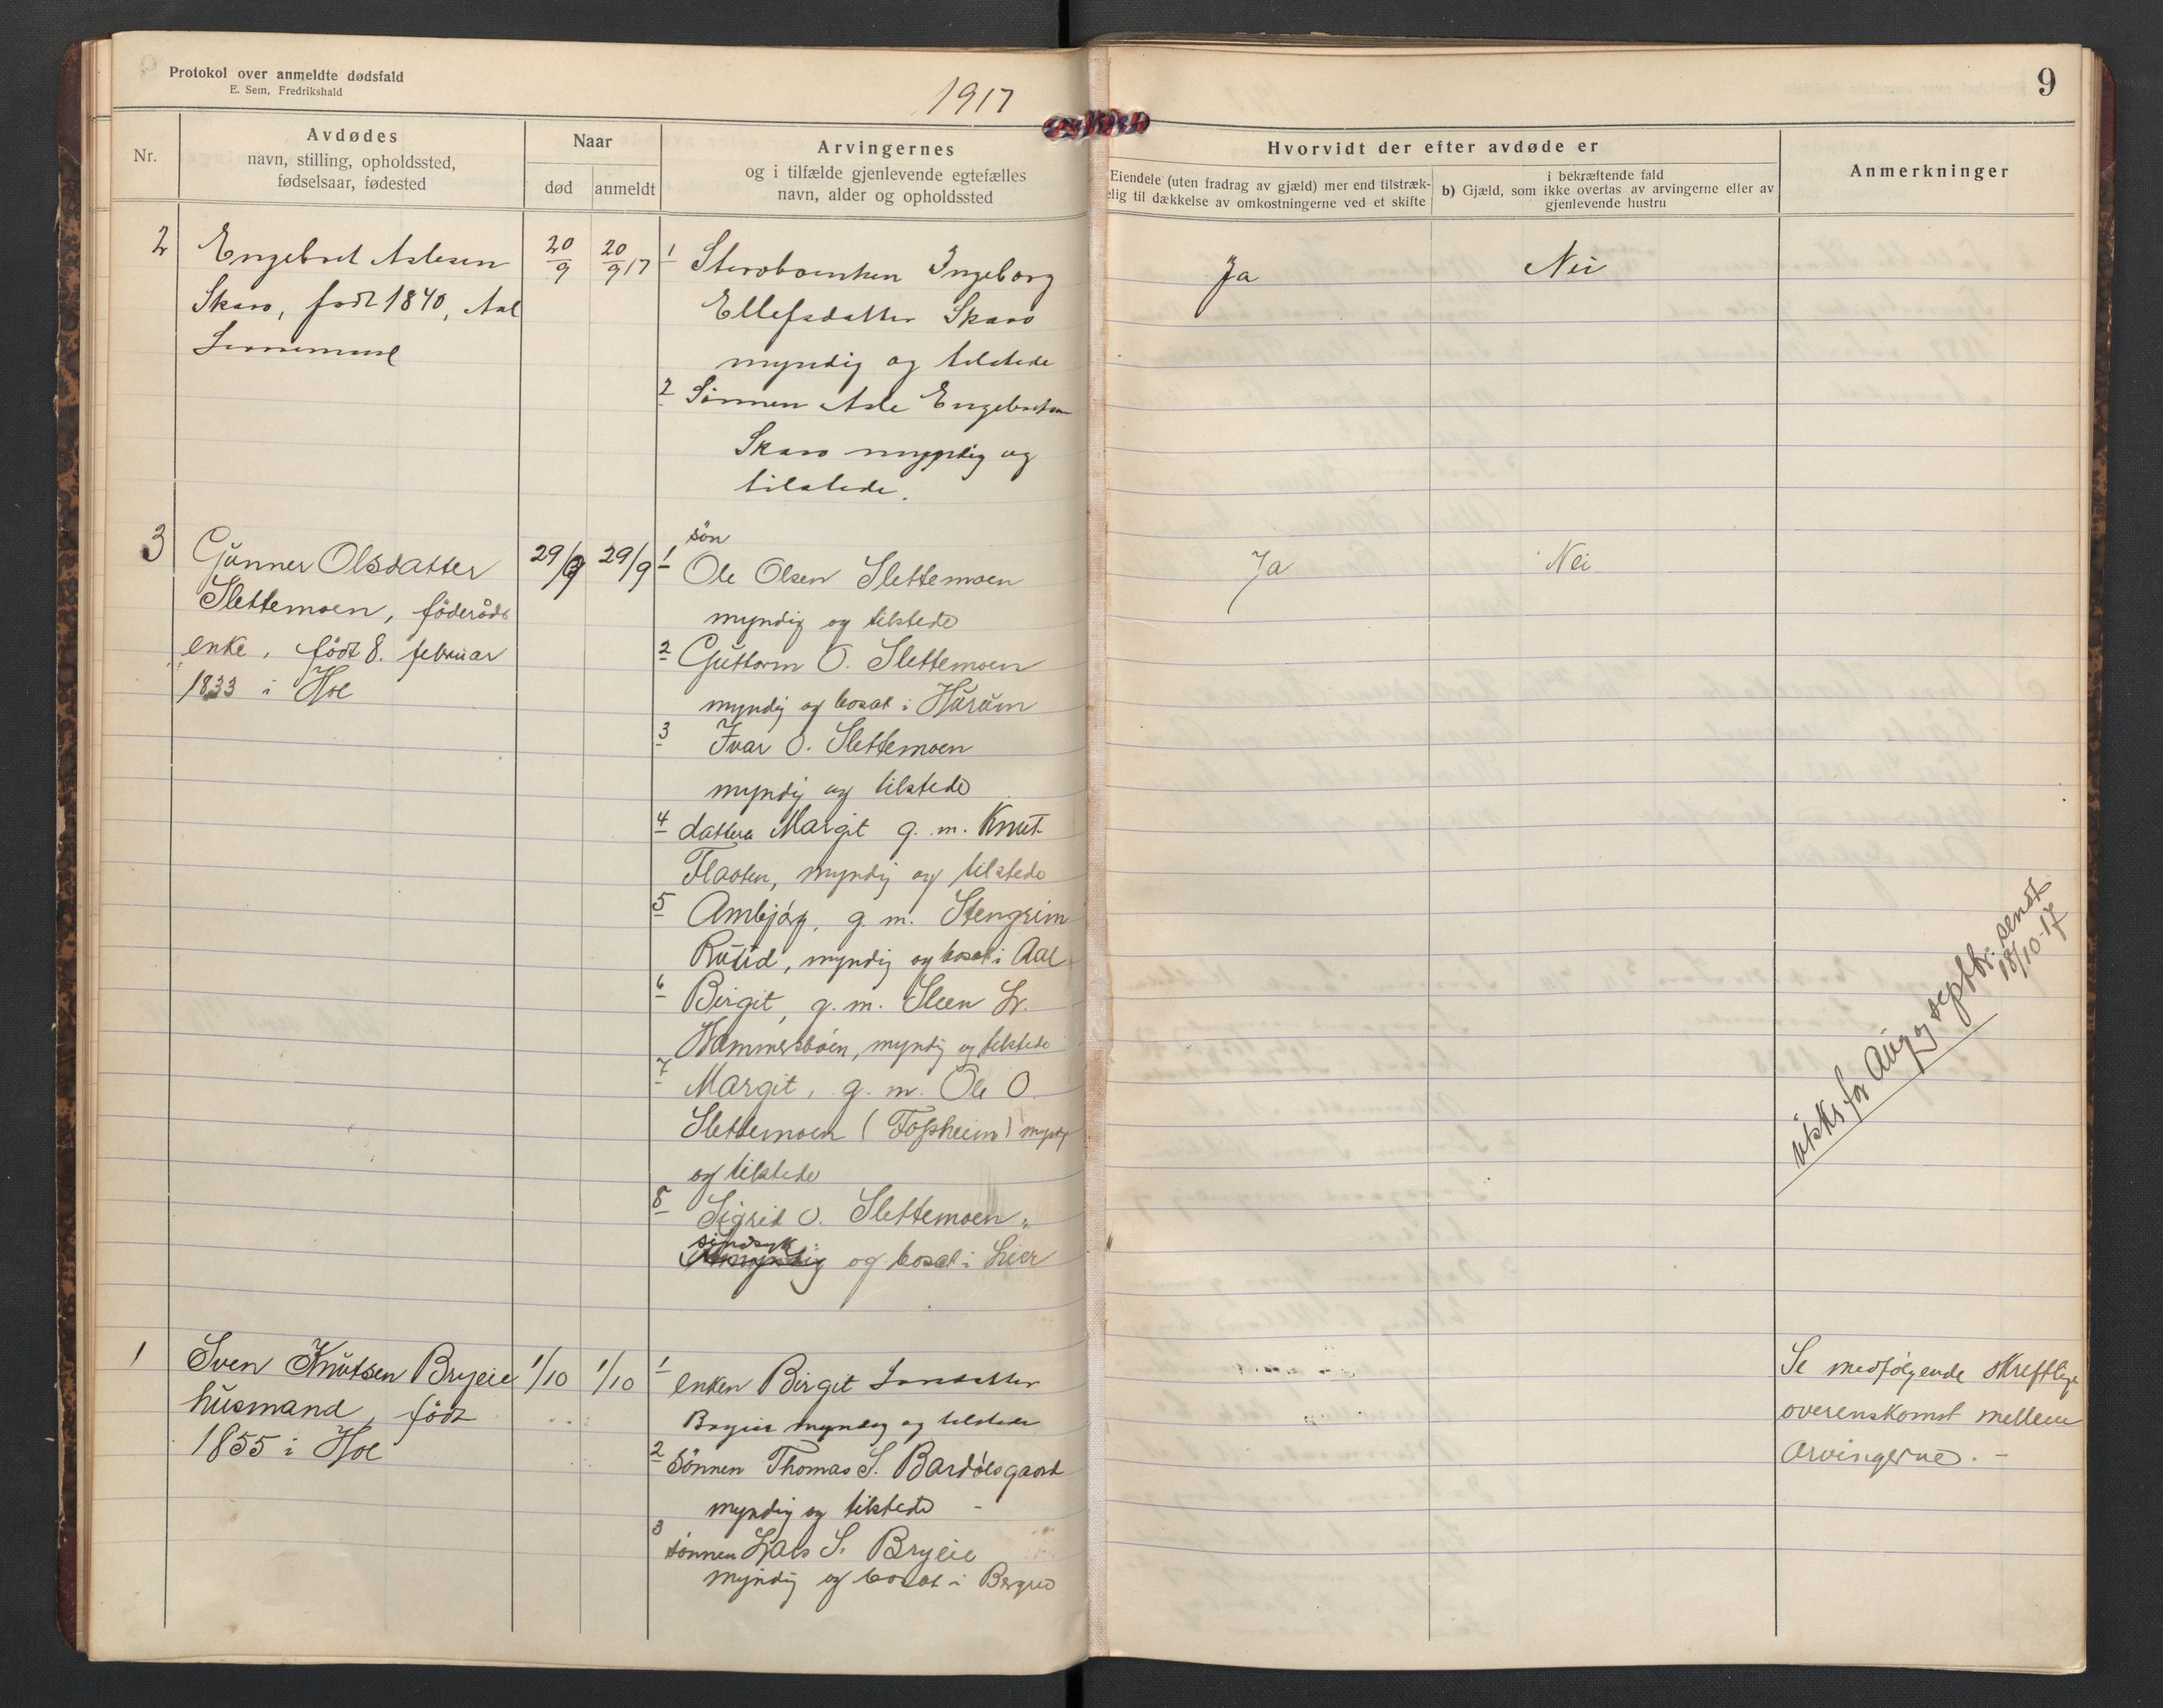 Protokol over anmeldte dødsfald
E. Sem, Fredrikshald
1917
9
Nr.
Avdødes
navn, stilling, opholdssted,
fødselsaar, fødested
Naar
død
anmeldt
Arvingernes
og i tilfælde gjenlevende egtefælles
navn, alder og opholdssted
Hvorvidt der efter avdøde er
Eiendele (uten fradrag av gjæld) mer end tilstræk-
elig til dækkelse av omkostningerne ved et skifte
i bekræftende fald
b) Gjæld, som ikke overtas av arvingerne eller av
gjenlevende hustru
Anmerkninger
2
Engebret Aslesen
Skaro, født 1840, Aal
20/9
20/9 17
1 Ingeborg
Ellefsdatter Skaro
myndig og tilstede
2 Sönnen Asle Engebretsen
Skaro myndig og
tilstede.
Ja
Nei
3
Gunner Olsdatter
Slettemoen, föderåds
enke, födt 8. februar
1833 i Hol
29/9
29/9
sön
1 Ole Olsen Slettemoen
myndig og tilstede
2 Guttorm O. Slettemoen
myndig og bosat i Hurum
3 Ivar O. Slettemoen
myndig og tilstede
4 datter Margit g. m. Knut
Flaaten, myndig og tilstede
5 Ambjörg, g. m. Stengrim
Rutid, myndig og bosat i Aal
6 Birgit, g. m. Steen L.
Hammersböen, myndig og tilstede
7 Margit, g. m. Ole O.
Slettemoen (Fossheim) myndig
og tilstede
8 Sigrid O. Slettemoen,
sindsyk
Umyndig og bosat i Lier
Ja
Nei
utskr for Aug og septbr. sendt
18/10-17
1
Sven Knutsen Bryeie
husmand, födt
1855 i Hol
1/10
1/10
1 enken Birgit Larsdatter
Bryeie myndig og tilstede
2 Sönnen Thomas S. Bardölsgaard
myndig og tilstede -
3 sönnen Lars S. Bryeie
myndig og bosat i Bergen
Se medfølgende skreftlige
overenskomst mellem
Arvingerne. -